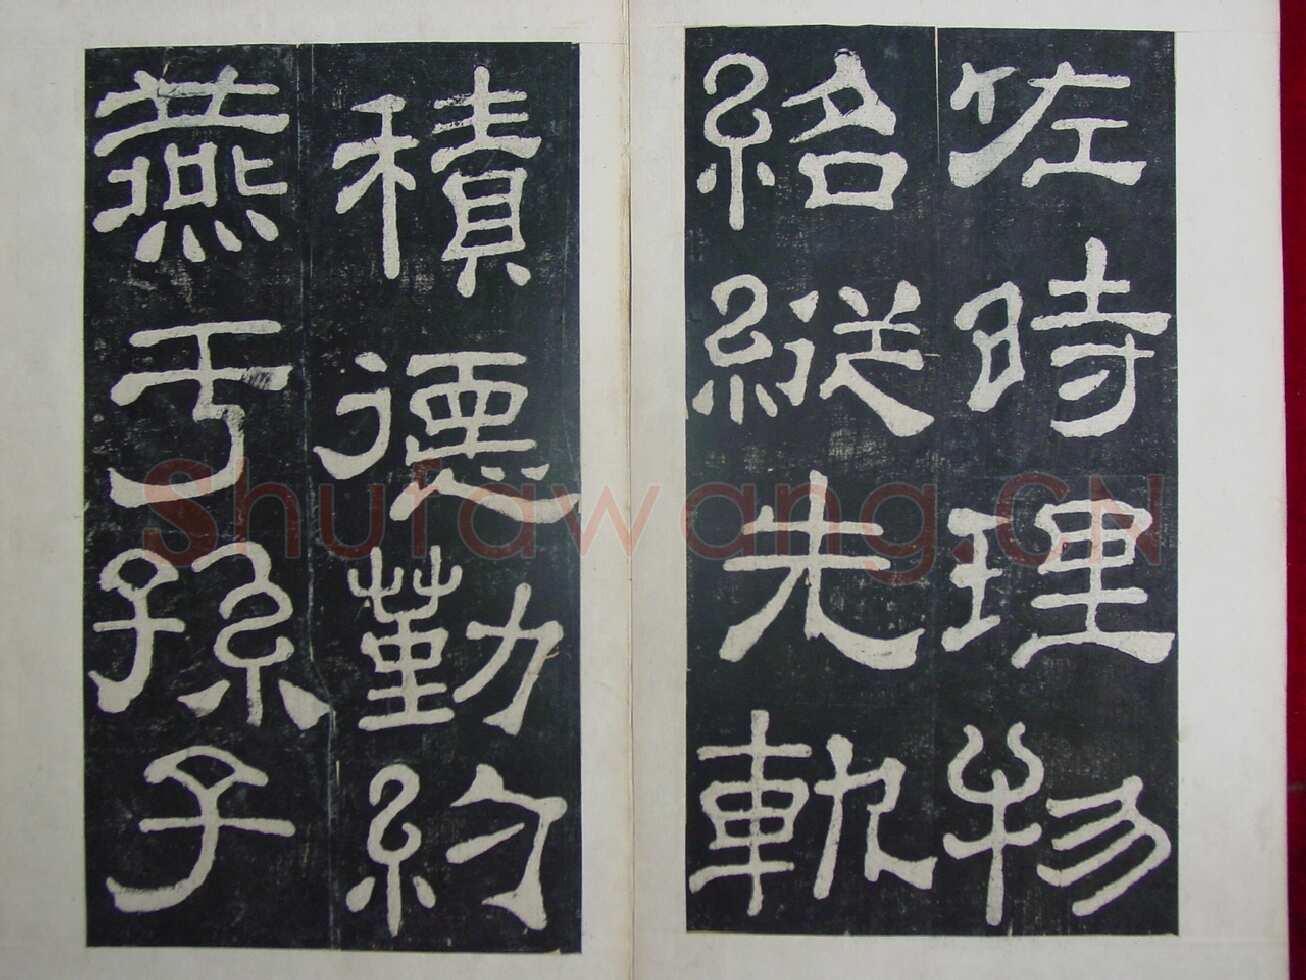 佐時理物
紹縱先軌
積德勤約
燕于孫子
Shufawang.CN